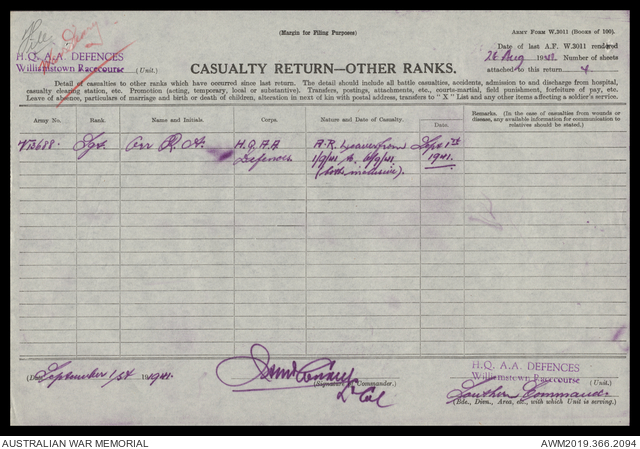 (Margin for Filing Purposes)
ARMY FORM W.3011 (BOOKS OF 100).
Date of last A.F. W.3011 rendered
26 Aug 1941. Number of sheets
attached to this return 4
H.Q. A.A. DEFENCES
Williamstown Racecourse (Unit.)
CASUALTY RETURN—OTHER RANKS.
Detail of casualties to other ranks which have occurred since last return. The detail should include all battle casualties, accidents, admission to and discharge from hospital,
casualty clearing station, etc. Promotion (acting, temporary, local or substantive). Transfers, postings, attachments, etc., courts-martial, field punishment, forfeiture of pay, etc.
Leave of absence, particulars of marriage and birth or death of children, alteration in next of kin with postal address, transfers to "X" List and any other items affecting a soldier's service.
Army No. Rank. Name and Initials. Corps. Nature and Date of Casualty. Date. Remarks. (In the case of casualties from wounds or
disease, any available information for communication to
relatives should be stated.)
V13688. Sgt. Orr R. A. H.Q. A.A A.R. Leave from Sept 1st
Defences 1/9/41 to 6/9/41 1941.
(both inclusive).
(Date) September 1st 1941.
(Signature of Commander.)
Lt Col
H.Q. A.A. DEFENCES
Williamstown Racecourse (Unit.)
Southern Command.
(Bde., Divn., Area, etc., with which Unit is serving.)
AUSTRALIAN WAR MEMORIAL AWM2019.366.2094